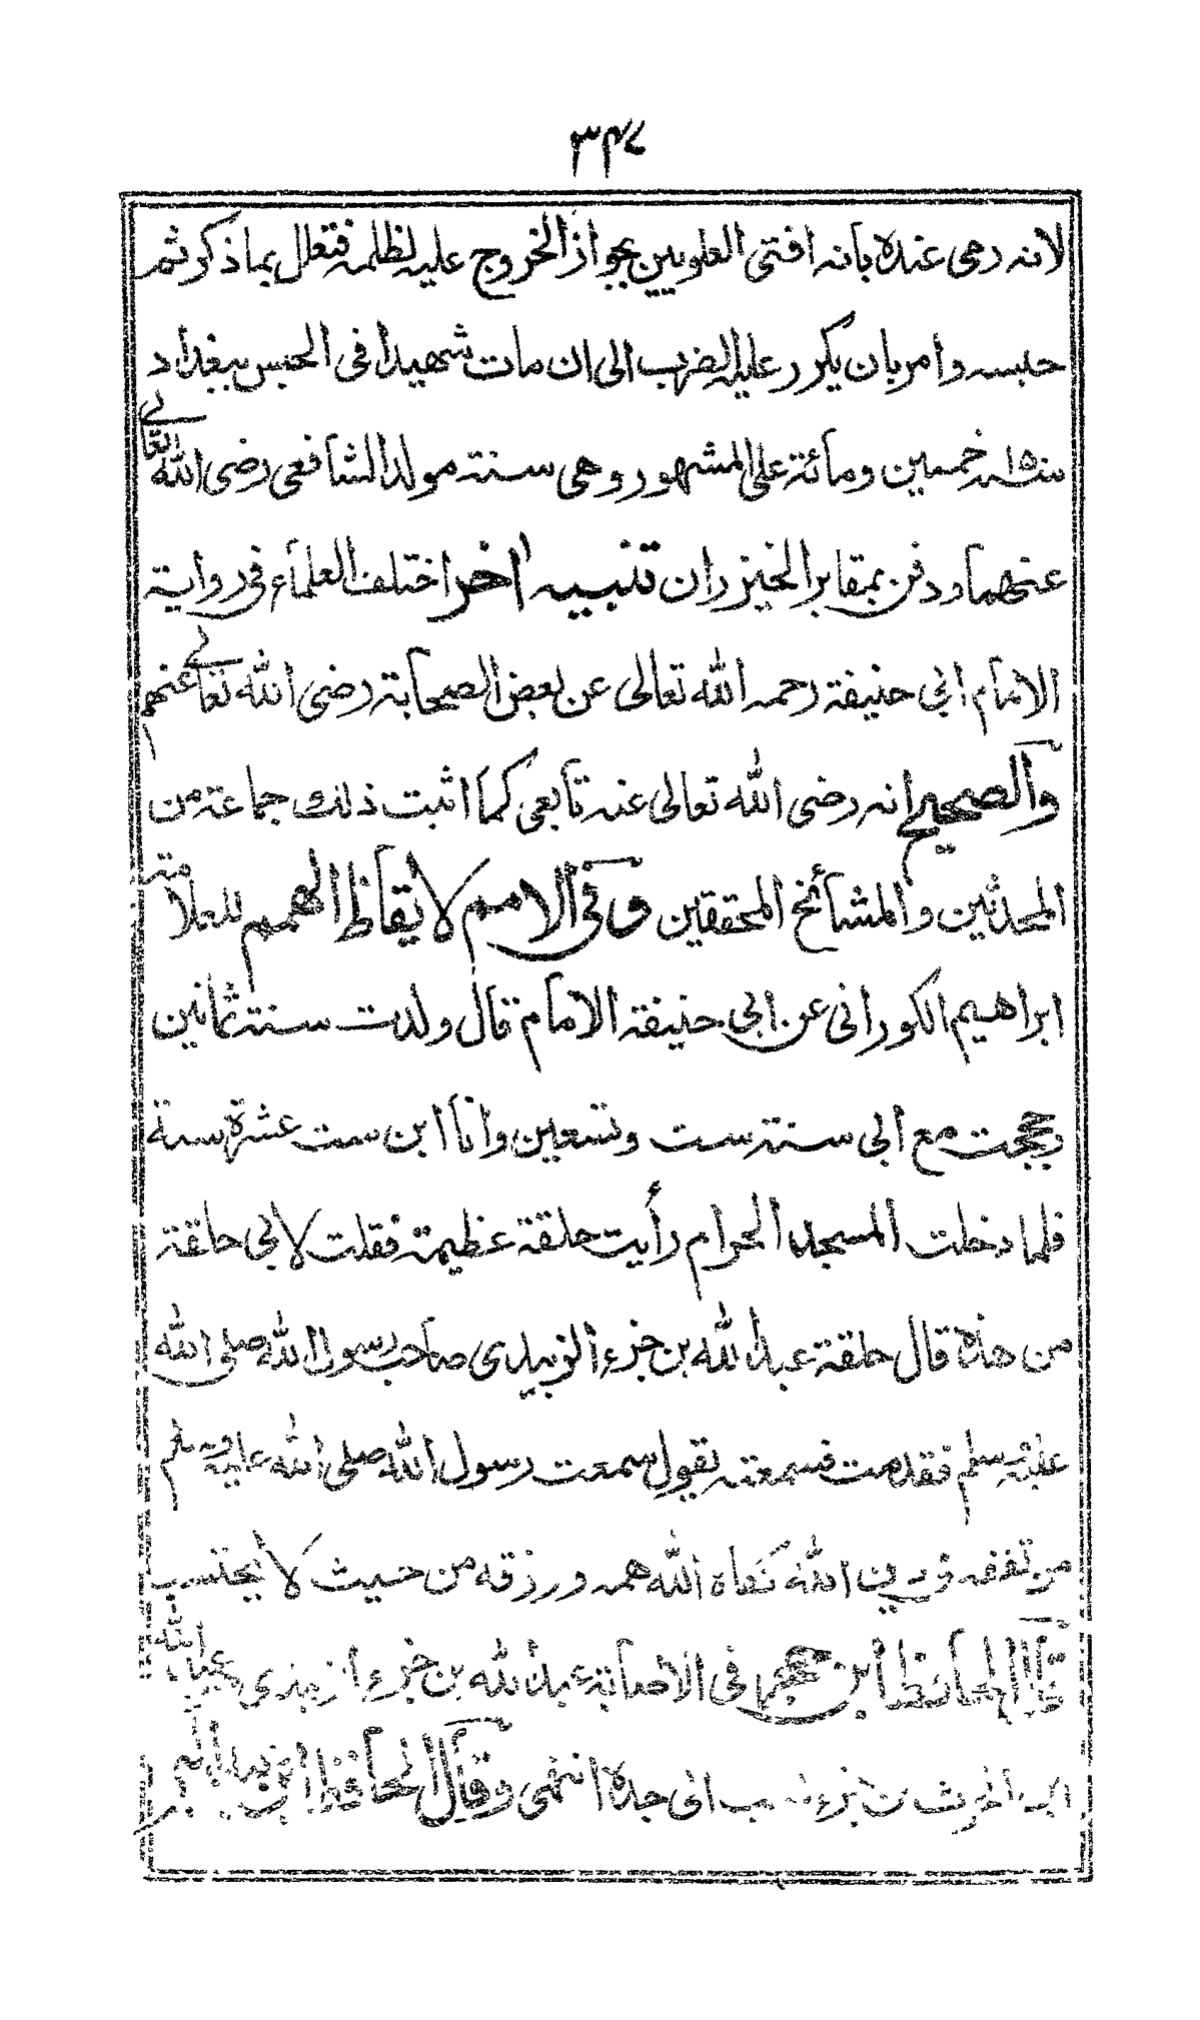 ٣٤٧
لانه رمى عنده بانه افتى العلويين بجواز الخروج عليه لظلمه فتعلل بما ذكر ثم
حبسه وامر بان يكرر عليه الضرب الى ان مات شهيدا فى الحبس ببغداد
سنة خمسين ومائة على المشهور وهى سنة مولد الشافعى رضى الله تعالى
عنهما ودفن بمقابر الخيزران تنبيه اخر اختلف العلماء فى رواية
الامام ابى حنيفة رحمه الله تعالى عن بعض الصحابة رضى الله تعالى عنهم
والصحيح انه رضى الله تعالى عنه تابعى كما اثبت ذلك جماعة من
المحدثين والمشائخ المحققين وفى الامم لايقاظ الهمم للعلامة
ابراهيم الكورانى عن ابى حنيفة الامام قال ولدت سنة ثمانين
وحججت مع ابى سنة ست وتسعين وانا ابن ست عشرة سنة
فلما دخلت المسجد الحرام رأيت حلقة عظيمة فقلت لابى حلقة
من هذه قال حلقة عبد الله بن جزء الزبيدى صاحب رسول الله صلى الله
عليه وسلم فقدمت فسمعته يقول سمعت رسول الله صلى الله عليه وسلم
من تفقه فى دين الله كفاه الله همه ورزقه من حيث لا يحتسب
قال الحافظ ابن حجر فى الاصابة عبد الله بن جزء الزبيدى عبد الله
ابن الحرث بن جزء نسب الى جده انتهى وقال الحافظ ابن عبد البر